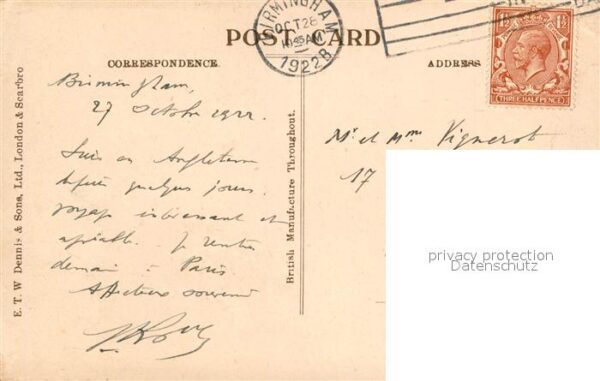 BIRMINGHAM
OCT 28
10 45 AM
1922
POST CARD
1½ 1½
THREE HALFPENCE
CORRESPONDENCE
ADDRESS
E. T. W Dennis & Sons, Ltd., London & Scarbro
British Manufacture Throughout.
Birmingham,
27 Octobre 1922
Suis en Angleterre
depuis quelques jours.
voyage intéressant et
agréable. Je rentre
demain à Paris
Affectueux souvenir
Mr et Mme Vignerot
17
privacy protection
Datenschutz